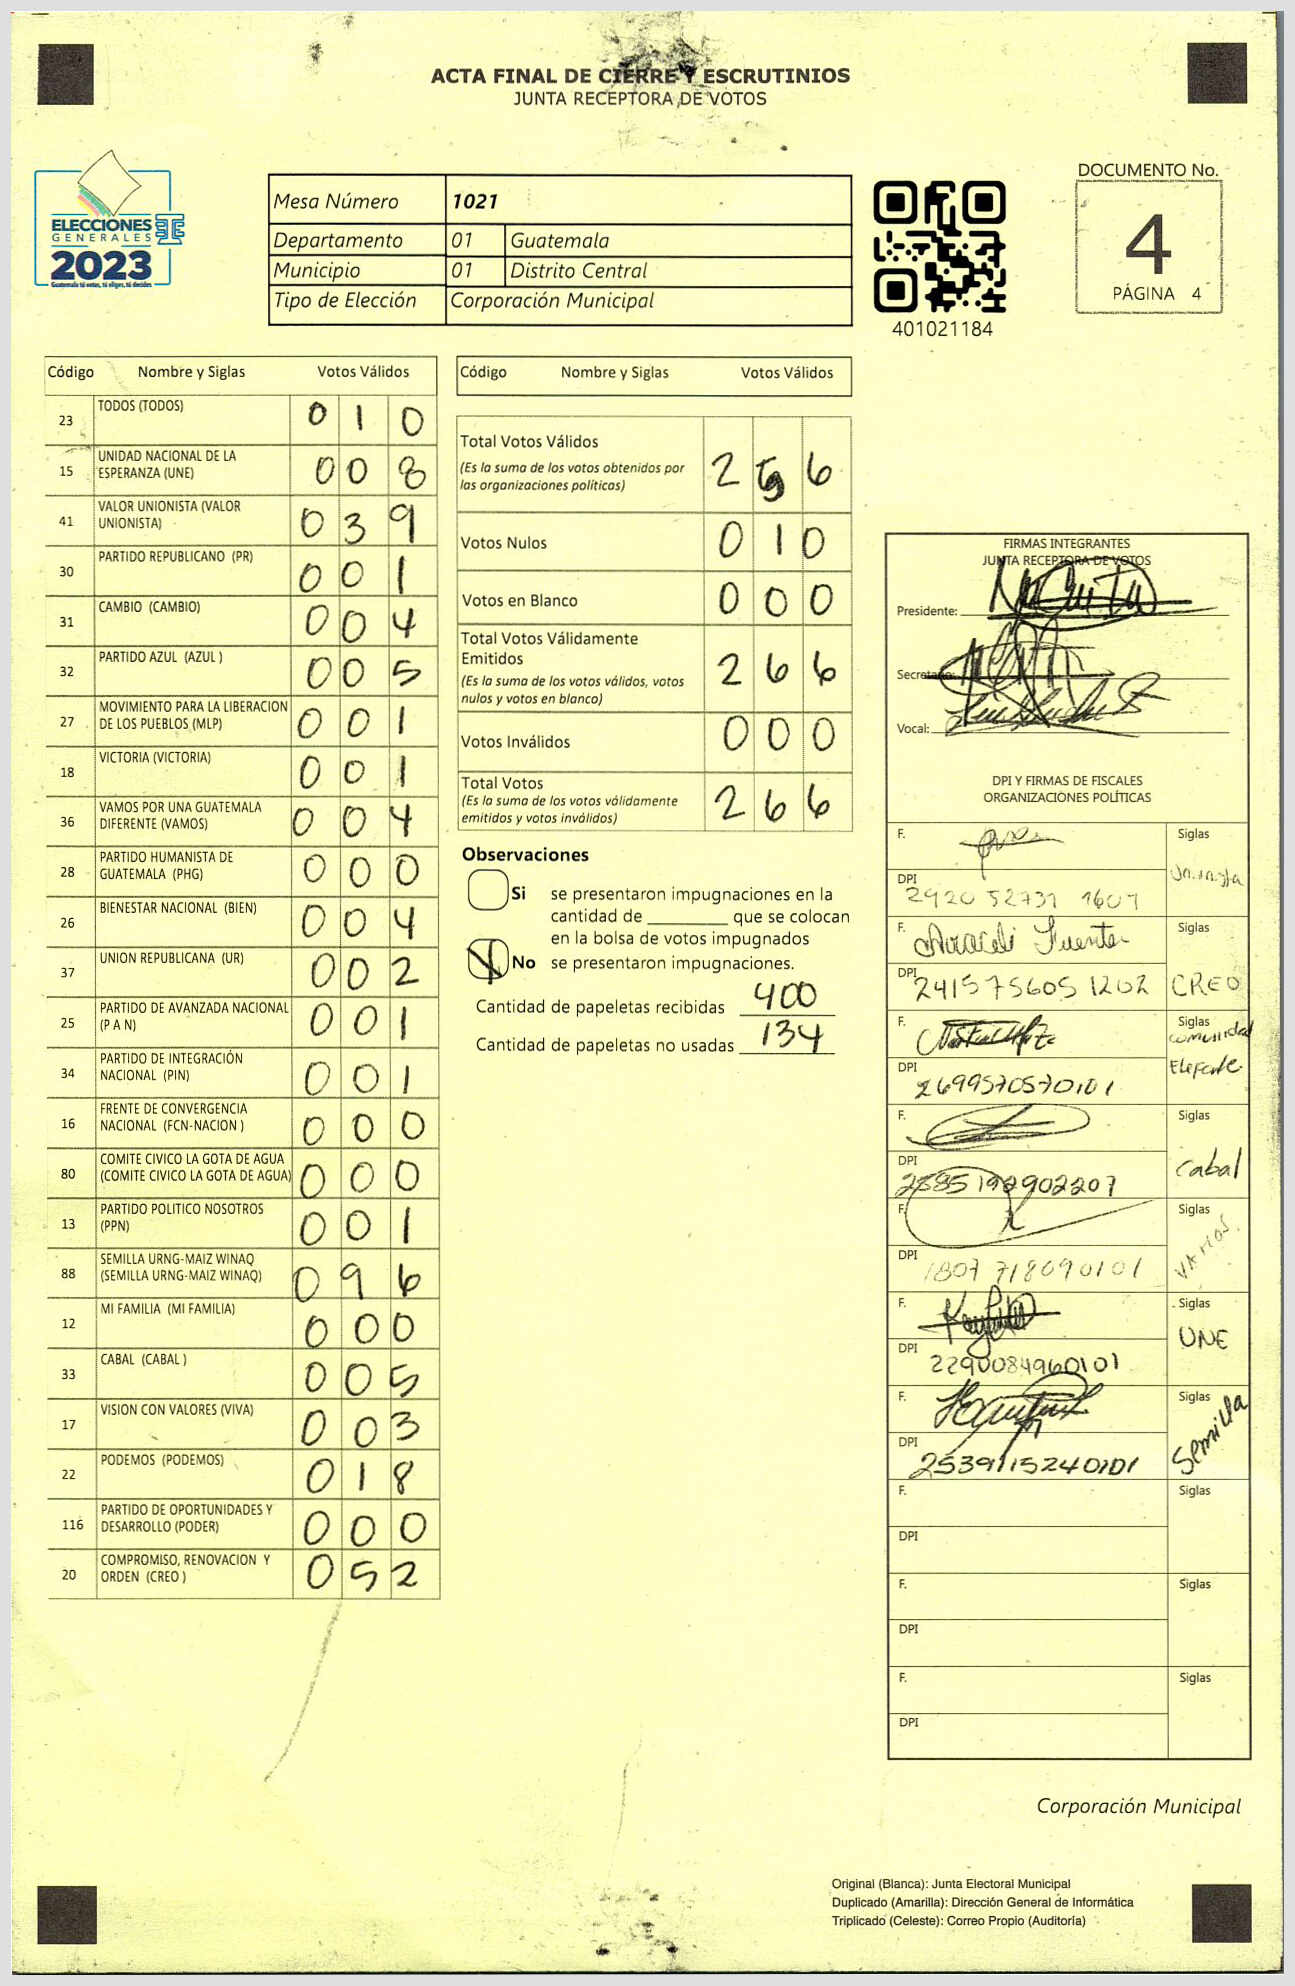 ACTA FINAL DE CIERRE Y ESCRUTINIOS
JUNTA RECEPTORA DE VOTOS
ELECCIONES
GENERALES
2023
Guatemala tú votas, tú eliges, tú decides
Mesa Número 1021
Departamento 01 Guatemala
Municipio 01 Distrito Central
Tipo de Elección Corporación Municipal
401021184
DOCUMENTO No.
4
PÁGINA 4
Código Nombre y Siglas Votos Válidos
23 TODOS (TODOS) 0 1 0
15 UNIDAD NACIONAL DE LA
ESPERANZA (UNE) 0 0 8
41 VALOR UNIONISTA (VALOR
UNIONISTA) 0 3 9
30 PARTIDO REPUBLICANO (PR) 0 0 1
31 CAMBIO (CAMBIO) 0 0 4
32 PARTIDO AZUL (AZUL ) 0 0 5
27 MOVIMIENTO PARA LA LIBERACION
DE LOS PUEBLOS (MLP) 0 0 1
18 VICTORIA (VICTORIA) 0 0 1
36 VAMOS POR UNA GUATEMALA
DIFERENTE (VAMOS) 0 0 4
28 PARTIDO HUMANISTA DE
GUATEMALA (PHG) 0 0 0
26 BIENESTAR NACIONAL (BIEN) 0 0 4
37 UNION REPUBLICANA (UR) 0 0 2
25 PARTIDO DE AVANZADA NACIONAL
(P A N) 0 0 1
34 PARTIDO DE INTEGRACIÓN
NACIONAL (PIN) 0 0 1
16 FRENTE DE CONVERGENCIA
NACIONAL (FCN-NACION ) 0 0 0
80 COMITE CIVICO LA GOTA DE AGUA
(COMITE CIVICO LA GOTA DE AGUA) 0 0 0
13 PARTIDO POLITICO NOSOTROS
(PPN) 0 0 1
88 SEMILLA URNG-MAIZ WINAQ
(SEMILLA URNG-MAIZ WINAQ) 0 9 6
12 MI FAMILIA (MI FAMILIA) 0 0 0
33 CABAL (CABAL ) 0 0 5
17 VISION CON VALORES (VIVA) 0 0 3
22 PODEMOS (PODEMOS) 0 1 8
116 PARTIDO DE OPORTUNIDADES Y
DESARROLLO (PODER) 0 0 0
20 COMPROMISO, RENOVACION Y
ORDEN (CREO ) 0 5 2
Código Nombre y Siglas Votos Válidos
Total Votos Válidos 2 5 6
(Es la suma de los votos obtenidos por
las organizaciones políticas)
Votos Nulos 0 1 0
Votos en Blanco 0 0 0
Total Votos Válidamente
Emitidos 2 6 6
(Es la suma de los votos válidos, votos
nulos y votos en blanco)
Votos Inválidos 0 0 0
Total Votos 2 6 6
(Es la suma de los votos válidamente
emitidos y votos inválidos)
Observaciones
Si se presentaron impugnaciones en la
cantidad de ________ que se colocan
en la bolsa de votos impugnados
No se presentaron impugnaciones.
Cantidad de papeletas recibidas 400
Cantidad de papeletas no usadas 134
FIRMAS INTEGRANTES
JUNTA RECEPTORA DE VOTOS
Presidente:
Secretario:
Vocal:
DPI Y FIRMAS DE FISCALES
ORGANIZACIONES POLÍTICAS
F. Siglas
Unionista
DPI 2920 52731 1607
F. Araceli Fuentes Siglas
DPI 241575605 1202 CREO
F. Siglas
comunidad
Elefante
DPI 2699570570101
F. Siglas
Cabal
DPI 2385192902207
F. Siglas
VAMOS
DPI 1807 718090101
F. Siglas
UNE
DPI 2290084960101
F. Siglas
Semilla
DPI 2539115240101
F. Siglas
DPI
F. Siglas
DPI
F. Siglas
DPI
Corporación Municipal
Original (Blanca): Junta Electoral Municipal
Duplicado (Amarilla): Dirección General de Informática
Triplicado (Celeste): Correo Propio (Auditoría)